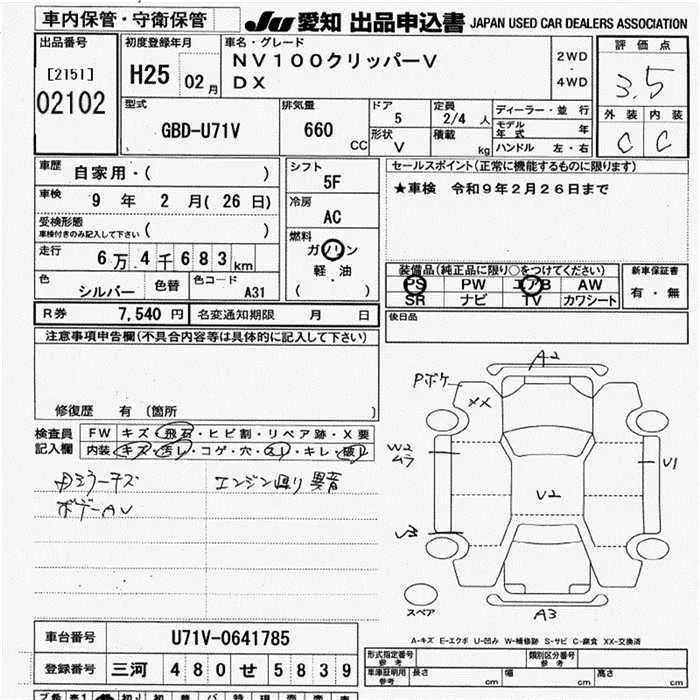 車内保管・守衛保管
JU 愛知 出品申込書 JAPAN USED CAR DEALERS ASSOCIATION
出品番号
[2151]
02102
初度登録年月
H25 02月
車名・グレード
NV100クリッパーV
DX
2WD
・
4WD
評価点
3.5
外装 内装
C C
型式
GBD-U71V
排気量
660 CC
ドア
5
形状
V
定員
2/4 人
積載
kg
ディーラー・並行
モデル年式 年
ハンドル 左・右
車歴 自家用・( )
車検 9年 2月(26日)
受検形態
車検付きのみ記入して下さい ( )
走行 6万4千683km
色 シルバー 色替 色コード A31
シフト
5F
冷房
AC
燃料
ガソリン
軽・油
( )
セールスポイント(正常に機能するものに限ります)
★車検 令和9年2月26日まで
装備品(純正品に限り○をつけてください)
PS PW エアB AW
SR ナビ TV カワシート
新車保証書
有・無
後日品
R券 7,540円 名変通知期限 月 日
注意事項申告欄(不具合内容等は具体的に記入して下さい)
修復歴 有(箇所 )
検査員記入欄
FW キズ・飛石・ヒビ割・リペア跡・X要
内装 キズ・汚レ・コゲ・穴・スレ・キレ・破レ
ボデーAU
異音
A2
XX
W2
ムラ
U1
U2
A3
スペア
A-キズ E-エクボ U-凹み W-補修跡 S-サビ C-腐食 XX-交換済
車台番号 U71V-0641785
登録番号 三河 480 せ 5839
形式指定番号 参考
類別区分番号 参考
車庫証明用 参考 長さ cm 幅 cm 高さ cm